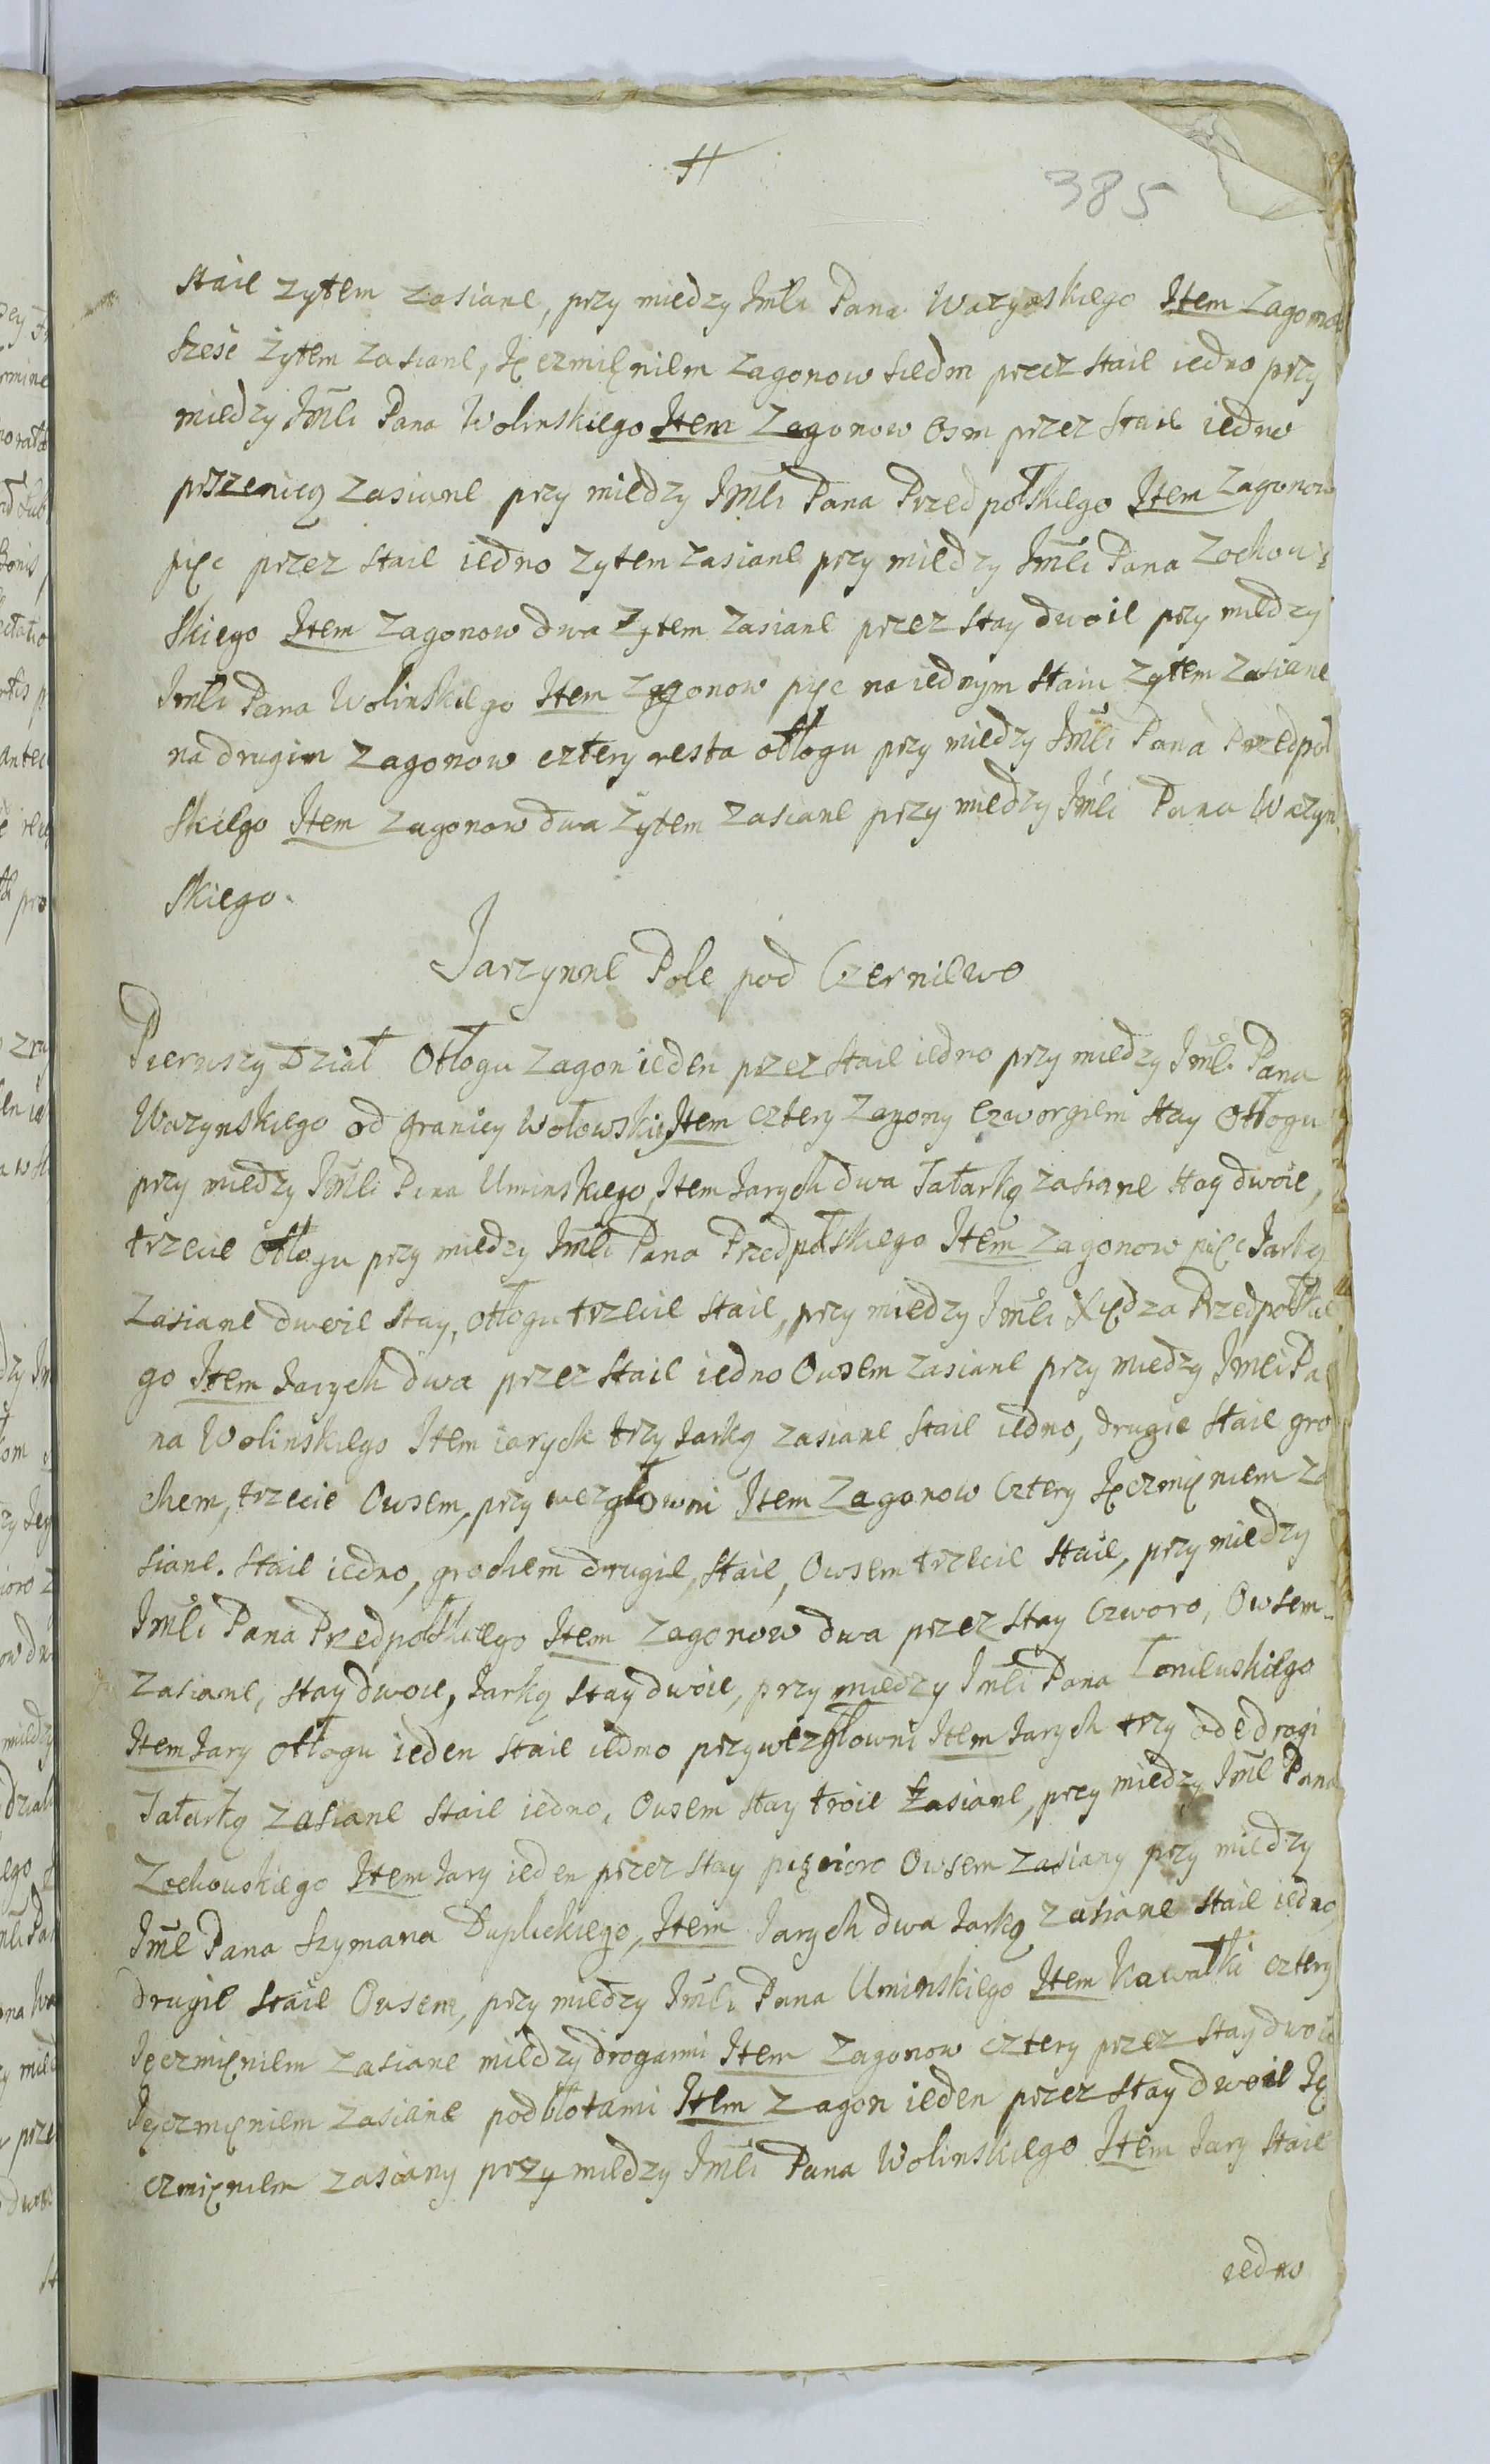 385
staie zytem zasiane, przy miedzy Jmci Pana Wazynskiego Item Zagonow
szesc zytem zasiane, Jęczmięniem zagonow siedm przez staie iedno przy
miedzy Jmci Pana Wolinskiego Item Zagonow osm przez staie iedno
przenicą zasiane przy miedzy Jmci Pana Przedpołskiego Item Zagonow
pięc przez staie iedno zytem zasiane przy miedzy Jmci Pana Zochow
skiego Item Zagonow dwa Zytem zasiane przez stay dwoie przy miedzy
Jmci Pana Wolinskiego Item Zagonow pięc na iednym staiu zytem zasiane
na drugim zagonow cztery resta otłogu przy miedzy Jmci Pana Przedpoł
skiego Item zagonow dwa zytem zasiane przy miedzy Jmci Pana Wazyn
skiego.
Jarzynne Pole pod Czerniewo
Pierwszy Dział Otłogu zagon ieden przez staie iedno przy miedzy Jmci Pana
Wazynskiego od granicy Wołowskiej Item cztery zagony czworgiem stay otłogu
przy miedzy Jmci Pana Uminskiego, Item Jarych dwa Tatarką zasiane stay dwoie,
trzecie otłogu przy miedzy Jmci Pana Przedpołskiego Item zagonow pięc Jarką
zasiane dwoie stay, otłogu trzecie staie, przy miedzy Jmci Xiędza Przedpołskie
go Item Jarych dwa przez staie iedno Owsem zasiane przy miedzy Jmci Pa
na Wolinskiego Item iarych trzy Jarką zasiane staie iedno, drugie staie gro
chem, trzecie Owsem, przy wezgłowni Item Zagonow Cztery Jęczmięniem za
siane. staie iedno, grochem drugie, staie, Owsem trzecie staie, przy miedzy
Jmci Pana Przedpołskiego Item zagonow dwa przez stay czworo, Owsem
zasiane, stay dwoie, Jarką stay dwoie, przy miedzy Jmci Pana Toniewskiego
Item Jary otłogu ieden staie iedno przy wezgłowni Item Jarych trzy ode drogi
Tatarką zasiane staie iedno, Owsem stay troie zasiane, przy miedzy Jmc Pana
Zochowskiego Item Jary ieden przez stay pięcioro Owsem zasiany przy miedzy
Jmc Pana Szymana Duplickiego, Item Jarych dwa Jarką zasiane staie iedno,
drugie staie Owsem, przy miedzy Jmci Pana Uminskiego Item Kawałki cztery
Jęczmięniem zasiane miedzy drogami Item zagonow cztery przez stay dwoie
Jęczmięniem zasiane podbłotami Item zagon ieden przez stay dwoie Ję
czmięniem zasiany przy miedzy Jmci Pana Wolinskiego Item Jary staie
iedno